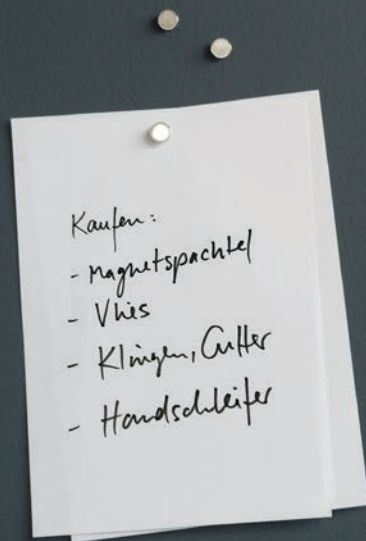 Kaufen:
- Magnetspachtel
- Vlies
- Klingen, Cutter
- Handschleifer